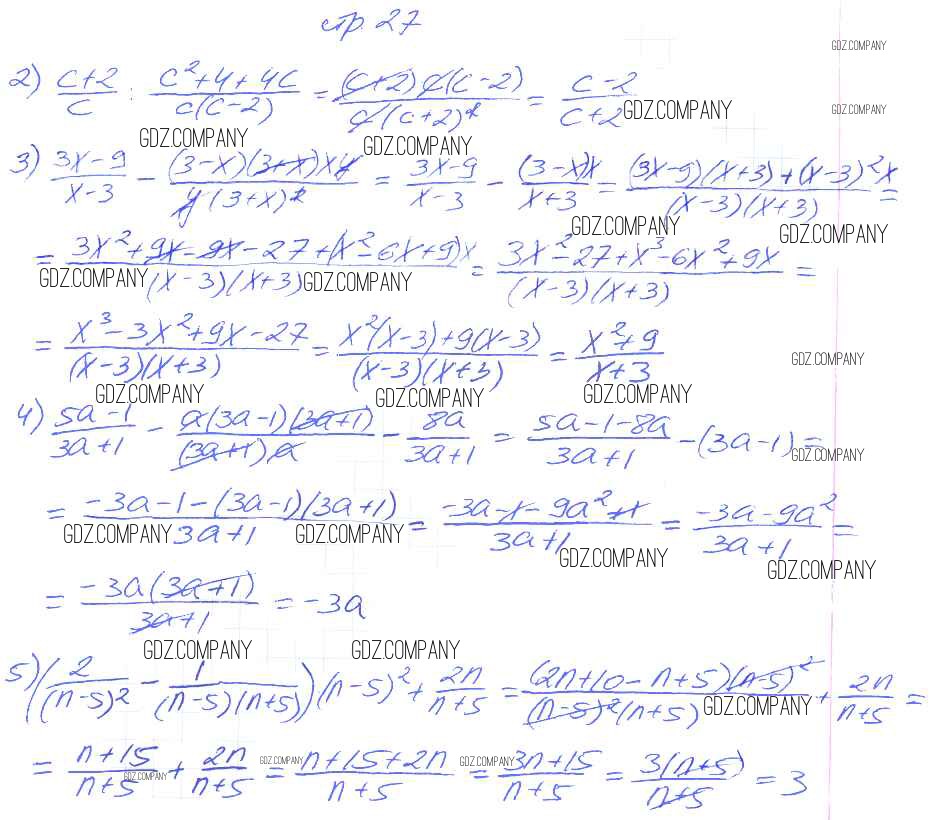 стр. 27
GDZ.COMPANY
2) (c+2)/c : (c²+4+4c)/(c(c-2)) = ((c+2)c(c-2))/(c(c+2)²) = (c-2)/(c+2) GDZ.COMPANY GDZ.COMPANY
GDZ.COMPANY GDZ.COMPANY
3) (3x-9)/(x-3) - ((3-x)(3+x)xy)/(y(3+x)²) = (3x-9)/(x-3) - ((3-x)x)/(x+3) = ((3x-9)(x+3)+(x-3)²x)/((x-3)(x+3)) =
GDZ.COMPANY GDZ.COMPANY
= (3x²+9x-9x-27+(x²-6x+9)x)/((x-3)(x+3)) = (3x²-27+x³-6x²+9x)/((x-3)(x+3)) =
GDZ.COMPANY GDZ.COMPANY
= (x³-3x²+9x-27)/((x-3)(x+3)) = (x²(x-3)+9(x-3))/((x-3)(x+3)) = (x²+9)/(x+3) GDZ.COMPANY
GDZ.COMPANY GDZ.COMPANY GDZ.COMPANY
4) (5a-1)/(3a+1) - (a(3a-1)(3a+1))/((3a+1)a) - 8a/(3a+1) = (5a-1-8a)/(3a+1) - (3a-1) = GDZ.COMPANY
= (-3a-1-(3a-1)(3a+1))/(3a+1) = (-3a-1-9a²+1)/(3a+1) = (-3a-9a²)/(3a+1) =
GDZ.COMPANY GDZ.COMPANY GDZ.COMPANY GDZ.COMPANY
= (-3a(3a+1))/(3a+1) = -3a
GDZ.COMPANY GDZ.COMPANY
5) (2/(n-5)² - 1/((n-5)(n+5)))(n-5)² + 2n/(n+5) = ((2n+10-n+5)(n-5)²)/((n-5)²(n+5)) + 2n/(n+5) =
GDZ.COMPANY
= (n+15)/(n+5) + 2n/(n+5) = (n+15+2n)/(n+5) = (3n+15)/(n+5) = (3(n+5))/(n+5) = 3
GDZ.COMPANY GDZ.COMPANY GDZ.COMPANY